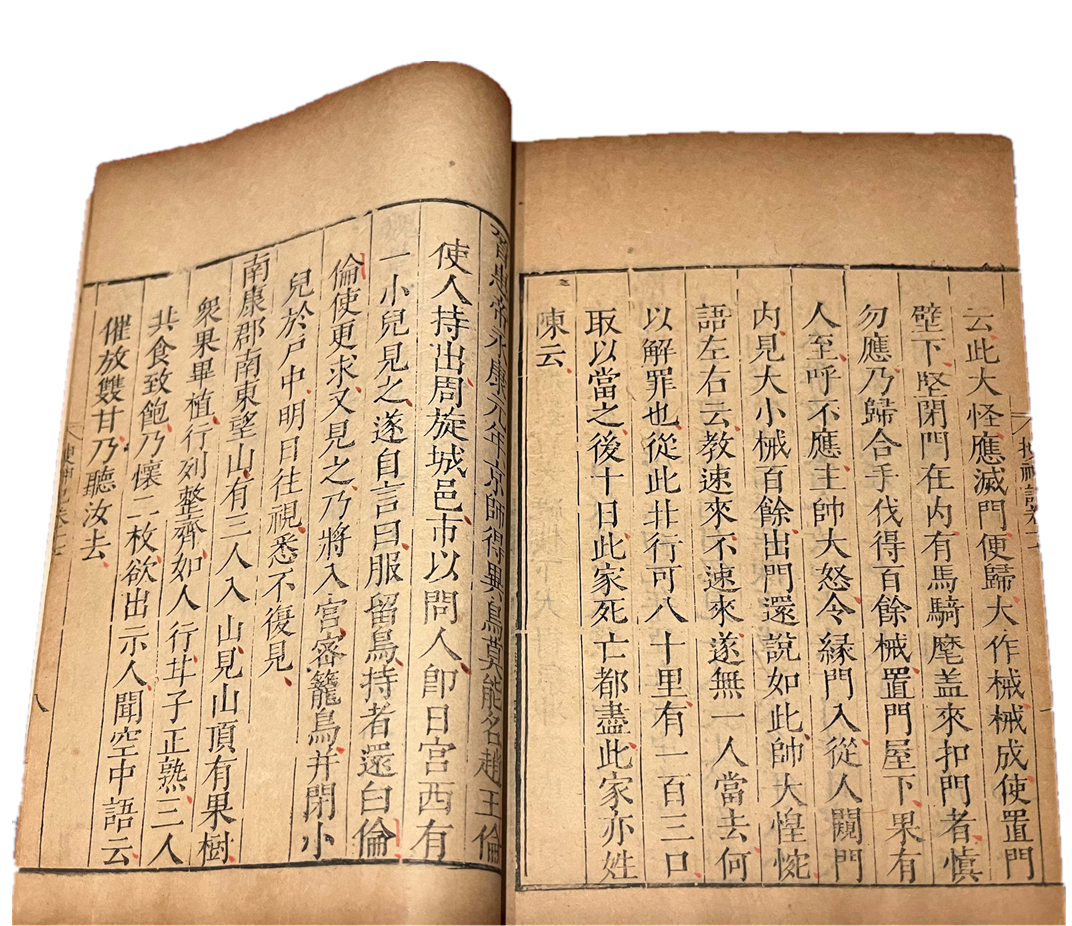 搜神記卷十
云此大怪應滅門便歸大作械械成使置門
壁下堅閉門在内有馬騎麾盖來扣門者慎
勿應乃歸合手伐得百餘械置門屋下果有
人至呼不應主帥大怒令緣門入從人闚門
内見大小械百餘出門還說如此帥大惶惋
語左右云教速來不速來遂無一人當去何
以解罪也從此北行可八十里有一百三口
取以當之後十日此家死亡都盡此家亦姓
陳云
晉惠帝永康元年京師得異鳥莫能名趙王倫
使人持出周旋城邑市以問人即日宮西有
一小兒見之遂自言曰服留鳥持者還白倫
倫使更求又見之乃將入宮密籠鳥并閉小
兒於户中明日往視悉不復見
南康郡南東望山有三人入山見山頂有果樹
衆果畢植行列整齊如人行甘子正熟三人
共食致飽乃懷二枚欲出示人聞空中語云
催放雙甘乃聽汝去
八